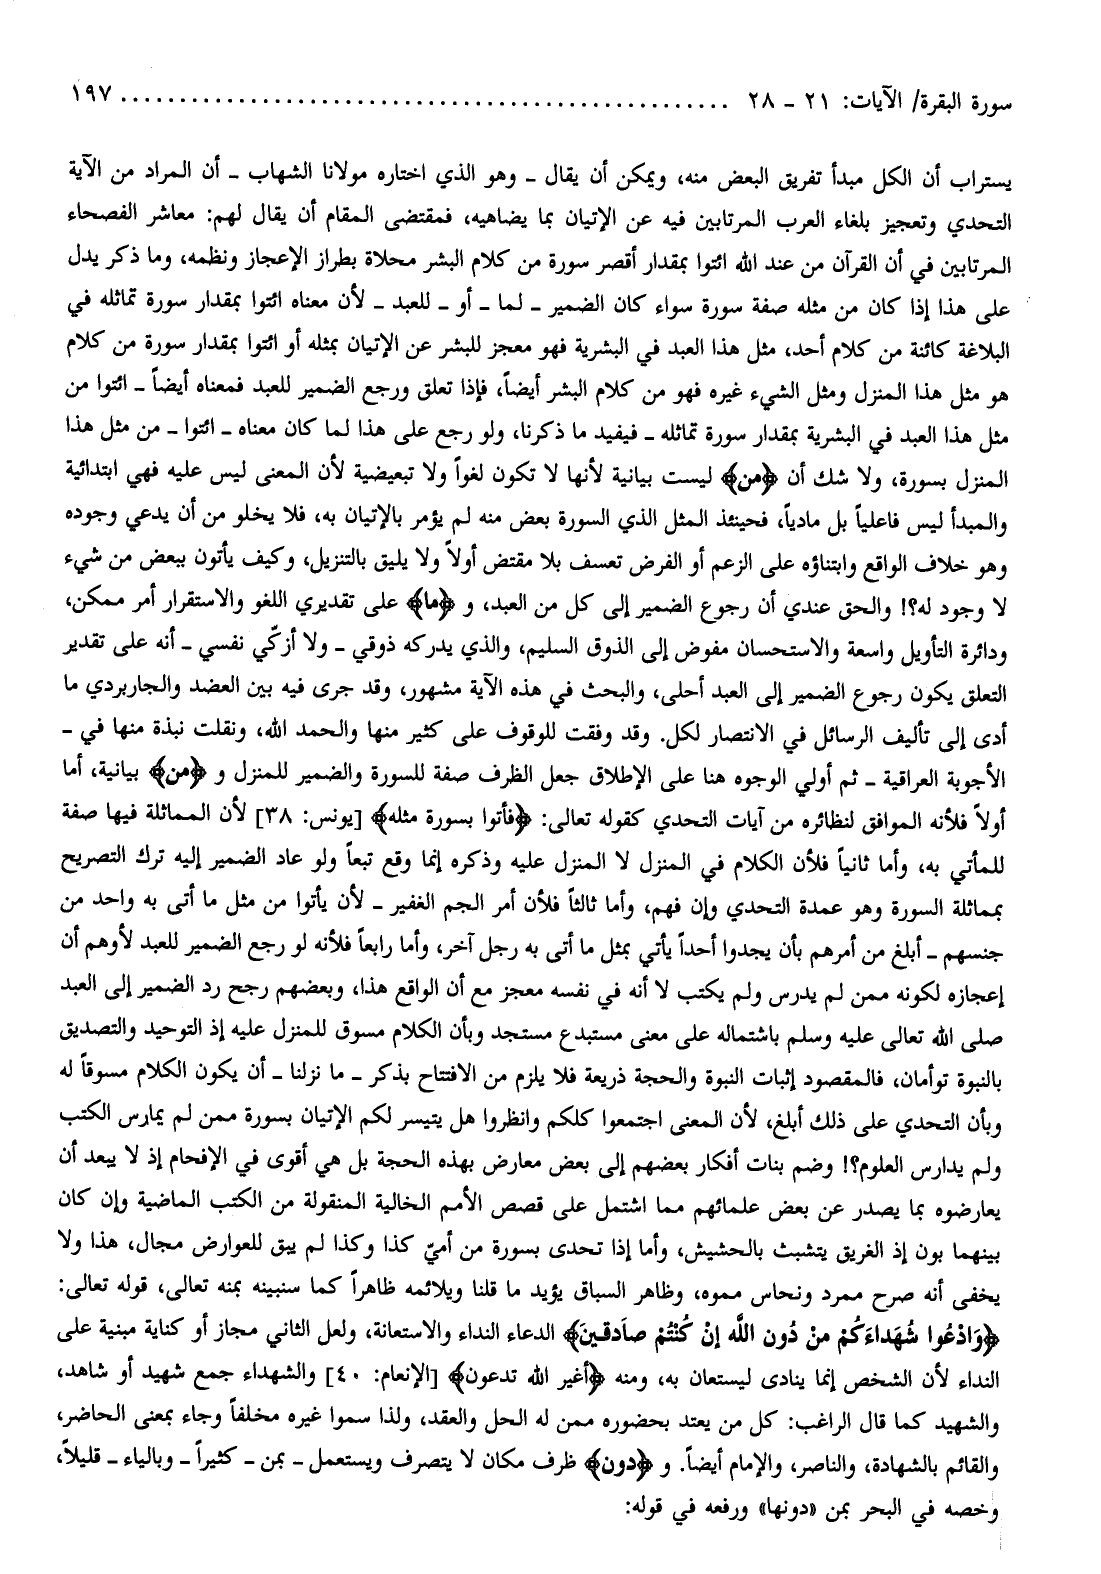 سورة البقرة/ الآيات: ٢١ - ٢٨ ................................................ ١٩٧
يستراب أن الكل مبدأ تفريق البعض منه، ويمكن أن يقال - وهو الذي اختاره مولانا الشهاب - أن المراد من الآية
التحدي وتعجيز بلغاء العرب المرتابين فيه عن الإتيان بما يضاهيه، فمقتضى المقام أن يقال لهم: معاشر الفصحاء
المرتابين في أن القرآن من عند الله ائتوا بمقدار أقصر سورة من كلام البشر محلاة بطراز الإعجاز ونظمه، وما ذكر يدل
على هذا إذا كان من مثله صفة سورة سواء كان الضمير - لما - أو - للعبد - لأن معناه ائتوا بمقدار سورة تماثله في
البلاغة كائنة من كلام أحد، مثل هذا العبد في البشرية فهو معجز للبشر عن الإتيان بمثله أو ائتوا بمقدار سورة من كلام
هو مثل هذا المنزل ومثل الشيء غيره فهو من كلام البشر أيضاً، فإذا تعلق ورجع الضمير للعبد فمعناه أيضاً - ائتوا من
مثل هذا العبد في البشرية بمقدار سورة تماثله - فيفيد ما ذكرنا، ولو رجع على هذا لما كان معناه - ائتوا - من مثل هذا
المنزل بسورة، ولا شك أن ﴿من﴾ ليست بيانية لأنها لا تكون لغواً ولا تبعيضية لأن المعنى ليس عليه فهي ابتدائية
والمبدأ ليس فاعلياً بل مادياً، فحينئذ المثل الذي السورة بعض منه لم يؤمر بالإتيان به، فلا يخلو من أن يدعي وجوده
وهو خلاف الواقع وابتناؤه على الزعم أو الفرض تعسف بلا مقتض أولاً ولا يليق بالتنزيل، وكيف يأتون ببعض من شيء
لا وجود له؟! والحق عندي أن رجوع الضمير إلى كل من العبد، و ﴿ما﴾ على تقديري اللغو والاستقرار أمر ممكن،
ودائرة التأويل واسعة والاستحسان مفوض إلى الذوق السليم، والذي يدركه ذوقي - ولا أزكّي نفسي - أنه على تقدير
التعلق يكون رجوع الضمير إلى العبد أحلى، والبحث في هذه الآية مشهور، وقد جرى فيه بين العضد والجاربردي ما
أدى إلى تأليف الرسائل في الانتصار لكل. وقد وفقت للوقوف على كثير منها والحمد الله، ونقلت نبذة منها في -
الأجوبة العراقية - ثم أولي الوجوه هنا على الإطلاق جعل الظرف صفة للسورة والضمير للمنزل و ﴿من﴾ بيانية، أما
أولاً فلأنه الموافق لنظائره من آيات التحدي كقوله تعالى: ﴿فأتوا بسورة مثله﴾ [يونس: ٣٨] لأن المماثلة فيها صفة
للمأتي به، وأما ثانياً فلأن الكلام في المنزل لا المنزل عليه وذكره إنما وقع تبعاً ولو عاد الضمير إليه ترك التصريح
بمماثلة السورة وهو عمدة التحدي وإن فهم، وأما ثالثاً فلأن أمر الجم الغفير - لأن يأتوا من مثل ما أتى به واحد من
جنسهم - أبلغ من أمرهم بأن يجدوا أحداً يأتي بمثل ما أتى به رجل آخر، وأما رابعاً فلأنه لو رجع الضمير للعبد لأوهم أن
إعجازه لكونه ممن لم يدرس ولم يكتب لا أنه في نفسه معجز مع أن الواقع هذا، وبعضهم رجح رد الضمير إلى العبد
صلى الله تعالى عليه وسلم باشتماله على معنى مستبدع مستجد وبأن الكلام مسوق للمنزل عليه إذ التوحيد والتصديق
بالنبوة توأمان، فالمقصود إثبات النبوة والحجة ذريعة فلا يلزم من الافتتاح بذكر - ما نزلنا - أن يكون الكلام مسوقاً له
وبأن التحدي على ذلك أبلغ، لأن المعنى اجتمعوا كلكم وانظروا هل يتيسر لكم الإتيان بسورة ممن لم يمارس الكتب
ولم يدارس العلوم؟! وضم بنات أفكار بعضهم إلى بعض معارض بهذه الحجة بل هي أقوى في الإفحام إذ لا يبعد أن
يعارضوه بما يصدر عن بعض علمائهم مما اشتمل على قصص الأمم الخالية المنقولة من الكتب الماضية وإن كان
بينهما بون إذ الغريق يتشبث بالحشيش، وأما إذا تحدى بسورة من أميّ كذا وكذا لم يبق للعوارض مجال، هذا ولا
يخفى أنه صرح ممرد ونحاس مموه، وظاهر السباق يؤيد ما قلنا ويلائمه ظاهراً كما سنبينه بمنه تعالى، قوله تعالى:
﴿وَادْعُوا شُهَداءَكُمْ مِنْ دُونِ اللَّه إنْ كُنْتُمْ صادِقِينَ﴾ الدعاء النداء والاستعانة، ولعل الثاني مجاز أو كناية مبنية على
النداء لأن الشخص إنما ينادى ليستعان به، ومنه ﴿أغير الله تدعون﴾ [الإنعام: ٤٠] والشهداء جمع شهيد أو شاهد،
والشهيد كما قال الراغب: كل من يعتد بحضوره ممن له الحل والعقد، ولذا سموا غيره مخلفاً وجاء بمعنى الحاضر،
والقائم بالشهادة، والناصر، والإمام أيضاً. و ﴿دون﴾ ظرف مكان لا يتصرف ويستعمل - بمن - كثيراً - وبالياء - قليلاً،
وخصه في البحر بمن «دونها» ورفعه في قوله: